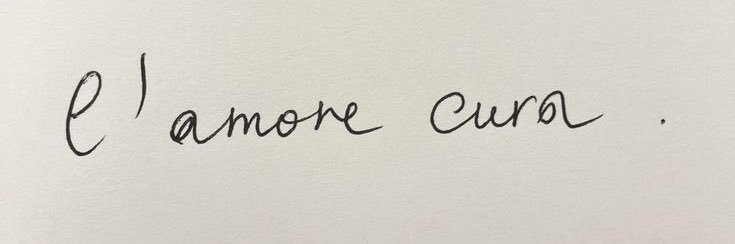 l'amore cura.